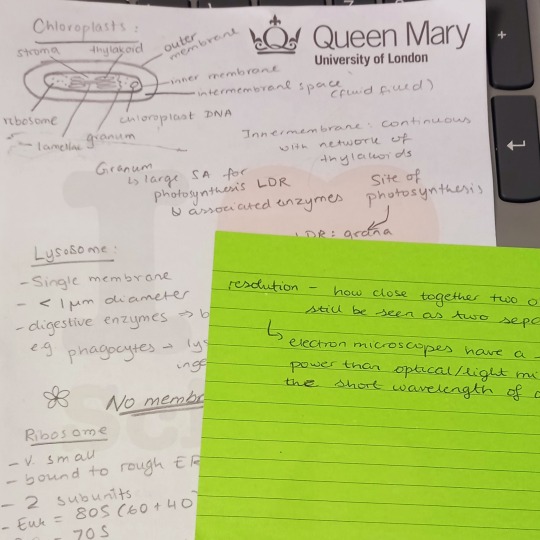 Chloroplasts:
stroma
thylakoid
outer
membrane
Queen Mary
University of London
inner membrane
intermembrane space
(fluid filled)
ribosome
chloroplast DNA
granum
lamellae
Innermembrane: continuous
with network of
thylakoids
Granum
↳ large SA for
photosynthesis LDR
↳ associated enzymes
Site of
photosynthesis
LDR: grana
Lysosome:
- Single membrane
- < 1μm diameter
- digestive enzymes →
eg phagocytes →
No
Ribosome
- v. small
- bound to rough ER
- 2 subunits
- Euk = 80S (60+40
70S
resolution - how close together two
still be seen as two
↳ electron microscopes have a
power than optical/light
the short wavelength of
+